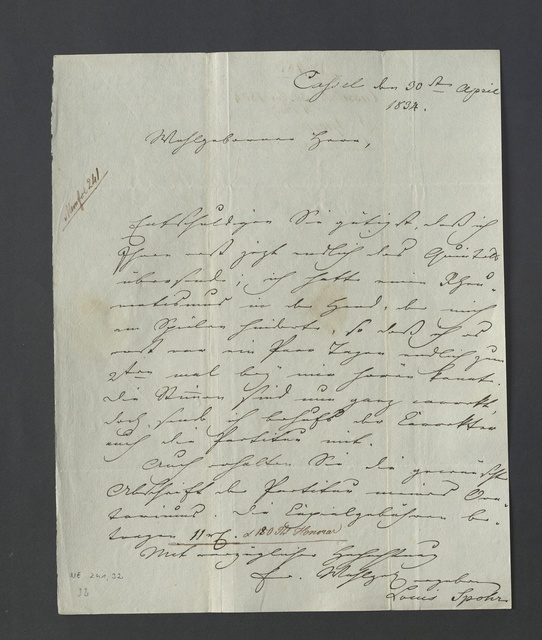 Cassel den 30sten April
1834.
Wohlgeborner Herr,
Entschuldigen Sie gütigst, daß ich
Ihnen erst jezt endlich das Quintett
übersende; ich hatte einen Rheu-
matismus in der Hand, der mich
am Spielen hinderte, so daß ich es
erst vor ein Paar Tagen endlich zum
2ten mal bey mir hören konnte.
Die Stimmen sind nun ganz correkt
doch sende ich behufs der Correktur
auch die Partitur mit.
Auch erhalten Sie die gewünschte
Abschrift der Partitur meines Ora-
toriums. Die Copialgebühren be-
tragen 11
Honorar
Mit vorzüglicher Hochachtung
Ew. Wohlgeb. ergebener
Louis Spohr